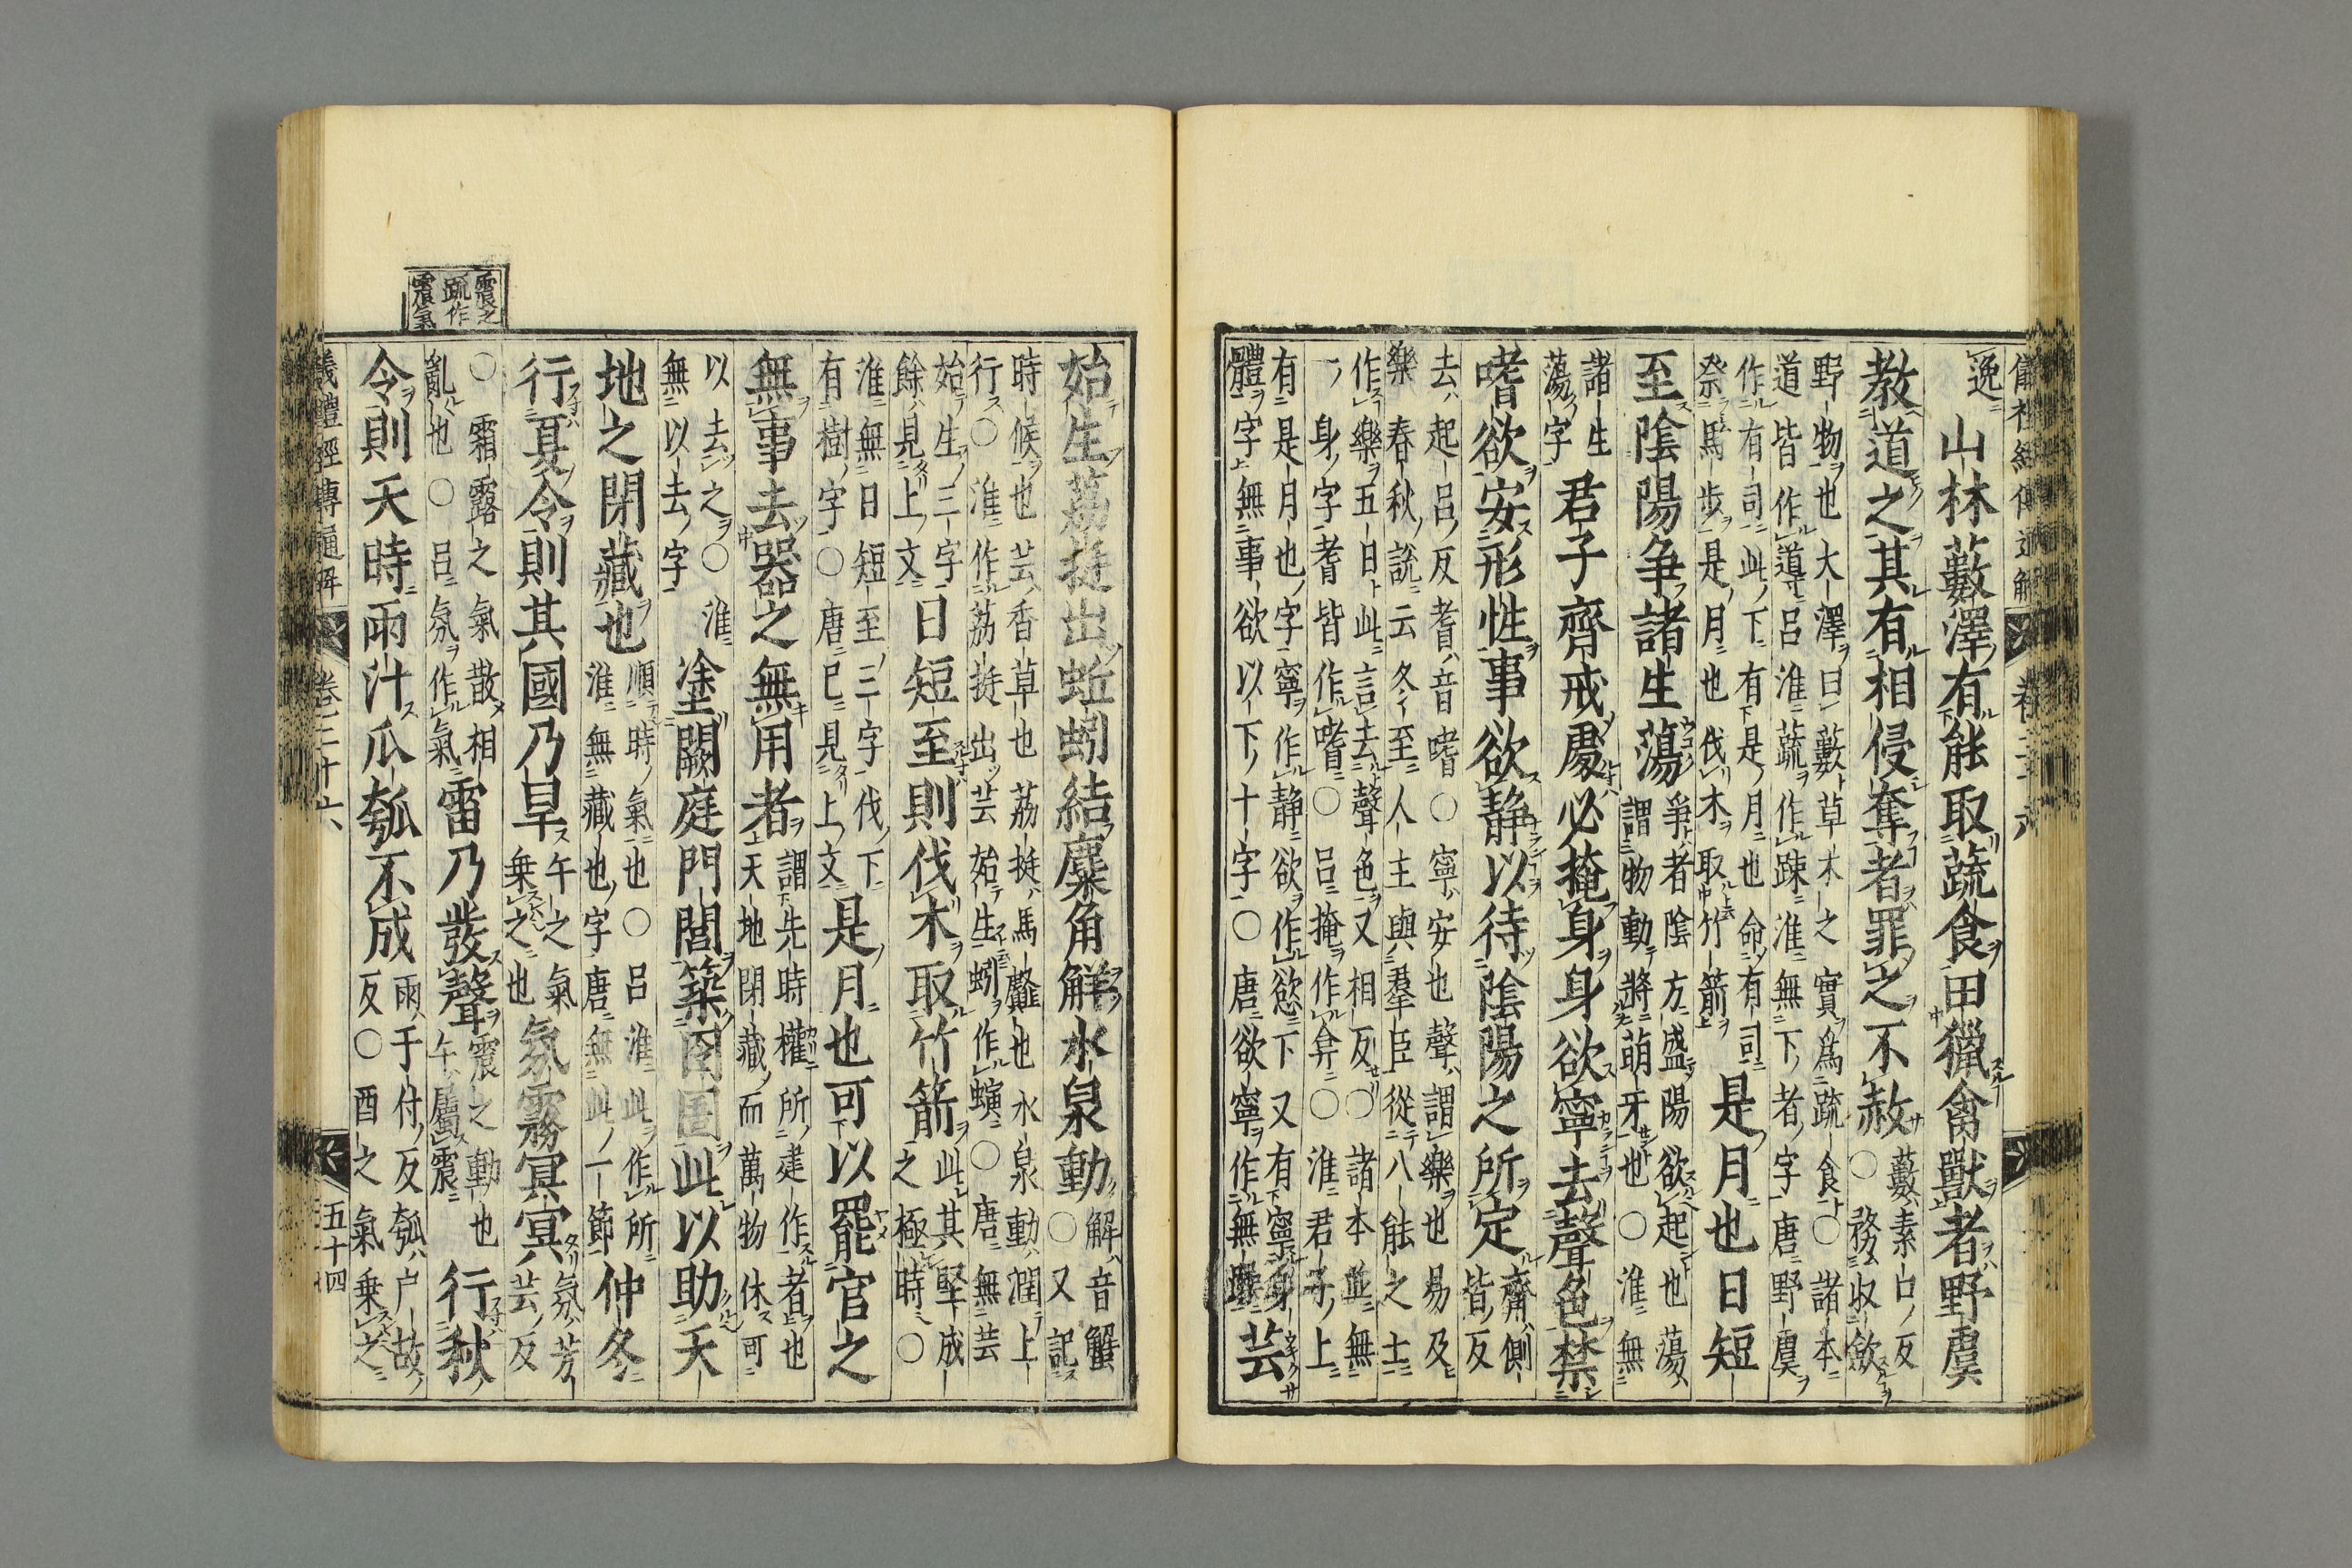 逸 山林藪澤有能取蔬食田獵禽獸者野虞
教道之其有相侵奪者罪之不赦
藪素口反
○務收斂
野物也大澤曰藪草木之實爲疏食○諸本
道皆作導呂淮蔬作疎淮無下者字唐野虞
作有司此下有是月也命有司
祭馬步是月也伐木取竹箭
是月也日短
至陰陽爭諸生蕩
爭者陰方盛陽欲起也蕩
謂物動將萌牙也○淮無
諸生
蕩字
君子齊戒處必掩身身欲寧去聲色禁
嗜欲安形性事欲静以待陰陽之所定
齊側
皆反
去起呂反耆音嗜○寧安也聲謂樂也易及
樂春秋說云冬至人主與羣臣從八能之士
作樂五日此言去聲色又相反○諸本並無
一身字耆皆作嗜○呂掩作弇○淮君子上
有是月也字寧作静欲作慾下又有寧身
體字無事欲以下十字○唐欲寧作無躁
芸
始生荔挺出蚯蚓結麋角解水泉動
○解音蟹
又記
時候也芸香草也荔挺馬䪥也水泉動潤上
行○淮作荔挺出芸始生蚓作螾○唐無芸
始生三字
餘見上文
日短至則伐木取竹箭
此其堅成
之極時○
淮無日短至三字伐下
有樹字○唐已見上文
是月也可以罷官之
無事去器之無用者
謂先時權所建作者也
天地閉藏而萬物休可
以去之○淮
無以去字
塗闕庭門閭築囹圄此以助天
地之閉藏也
順時氣也○呂淮此作所
淮無藏也字唐無此一節
仲冬
行夏令則其國乃旱
午之氣
乗之也
氛霧冥冥
氛芳
芸反
○霜露之氣散相
亂也○呂氛作氣
雷乃發聲
震之動也
午屬震
行秋
令則天時雨汁瓜瓠不成
雨于付反瓠户故
反○酉之氣乗之
儀禮經傳通解 卷二十六 五十四
震之
疏作
震氣